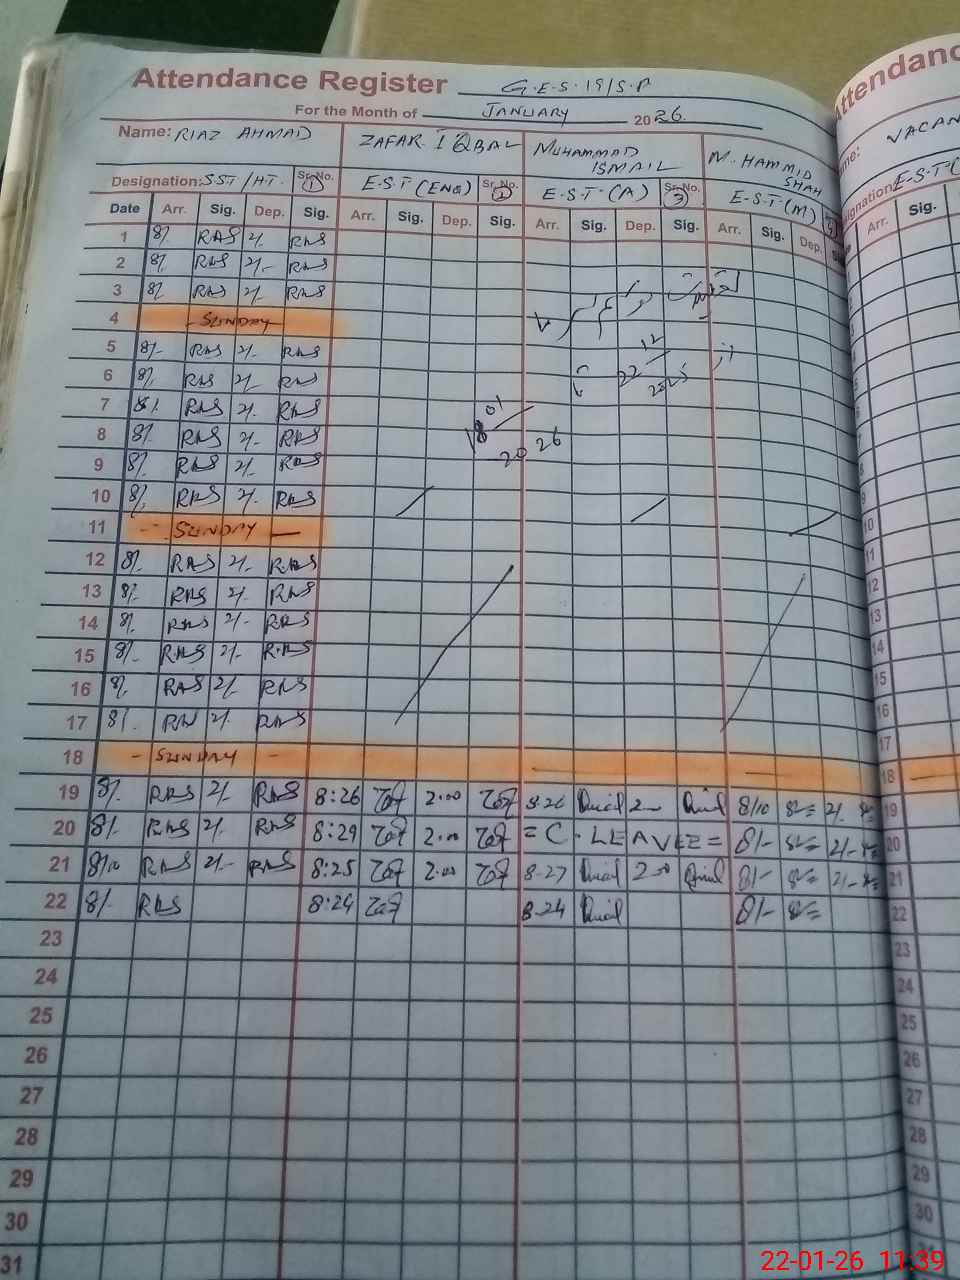 Attendance Register G.E.S. 19/S.P
For the Month of JANUARY 2026
Name: RIAZ AHMAD ZAFAR IQBAL MUHAMMAD ISMAIL M. HAMMID SHAH
Designation: SST/HT. Sr. No. 1 E.S.T (ENG) Sr. No. 2 E.S.T (A) Sr. No. 3 E.S.T (M) 4
Date Arr. Sig. Dep. Sig. Arr. Sig. Dep. Sig. Arr. Sig. Dep. Sig. Arr. Sig. Dep.
1 8/. RAS 2/. RAS
2 8/. RAS 2/- RAS
3 8/. RAS 2/- RAS
4 - SUNDAY -
5 8/- RAS 2/- RAS
6 8/. RAS 2/- RAS
7 8/. RAS 2/. RAS
22/12 2025
8 8/. RAS 2/- RAS
18/01 2026
9 8/. RAS 2/- RAS
10 8/. RAS 2/- RAS
11 - SUNDAY -
12 8/. RAS 2/- RAS
13 8/. RAS 2/- RAS
14 8/. RAS 2/- RAS
15 8/. RAS 2/- RAS
16 8/. RAS 2/- RAS
17 8/. RAS 2/. RAS
18 - SUNDAY -
19 8/. RAS 2/- RAS 8:26 2.00 8.26 2- 8/10 2/.
20 8/- RAS 2/. RAS 8:29 2.00 = C. LEAVE = 8/- 2/-
21 8/10 RAS 2/- RAS 8:25 2.00 8.27 2.00 8/- 2/-
22 8/- RAS 8:24 8.24 8/-
23
24
25
26
27
28
29
30
31
Attendanc
Name: VACAN
Designation: E.S.T (
Arr. Sig.
10
11
12
13
14
15
16
17
18
19
20
21
22
23
24
25
26
27
28
29
30
22-01-26 11:39